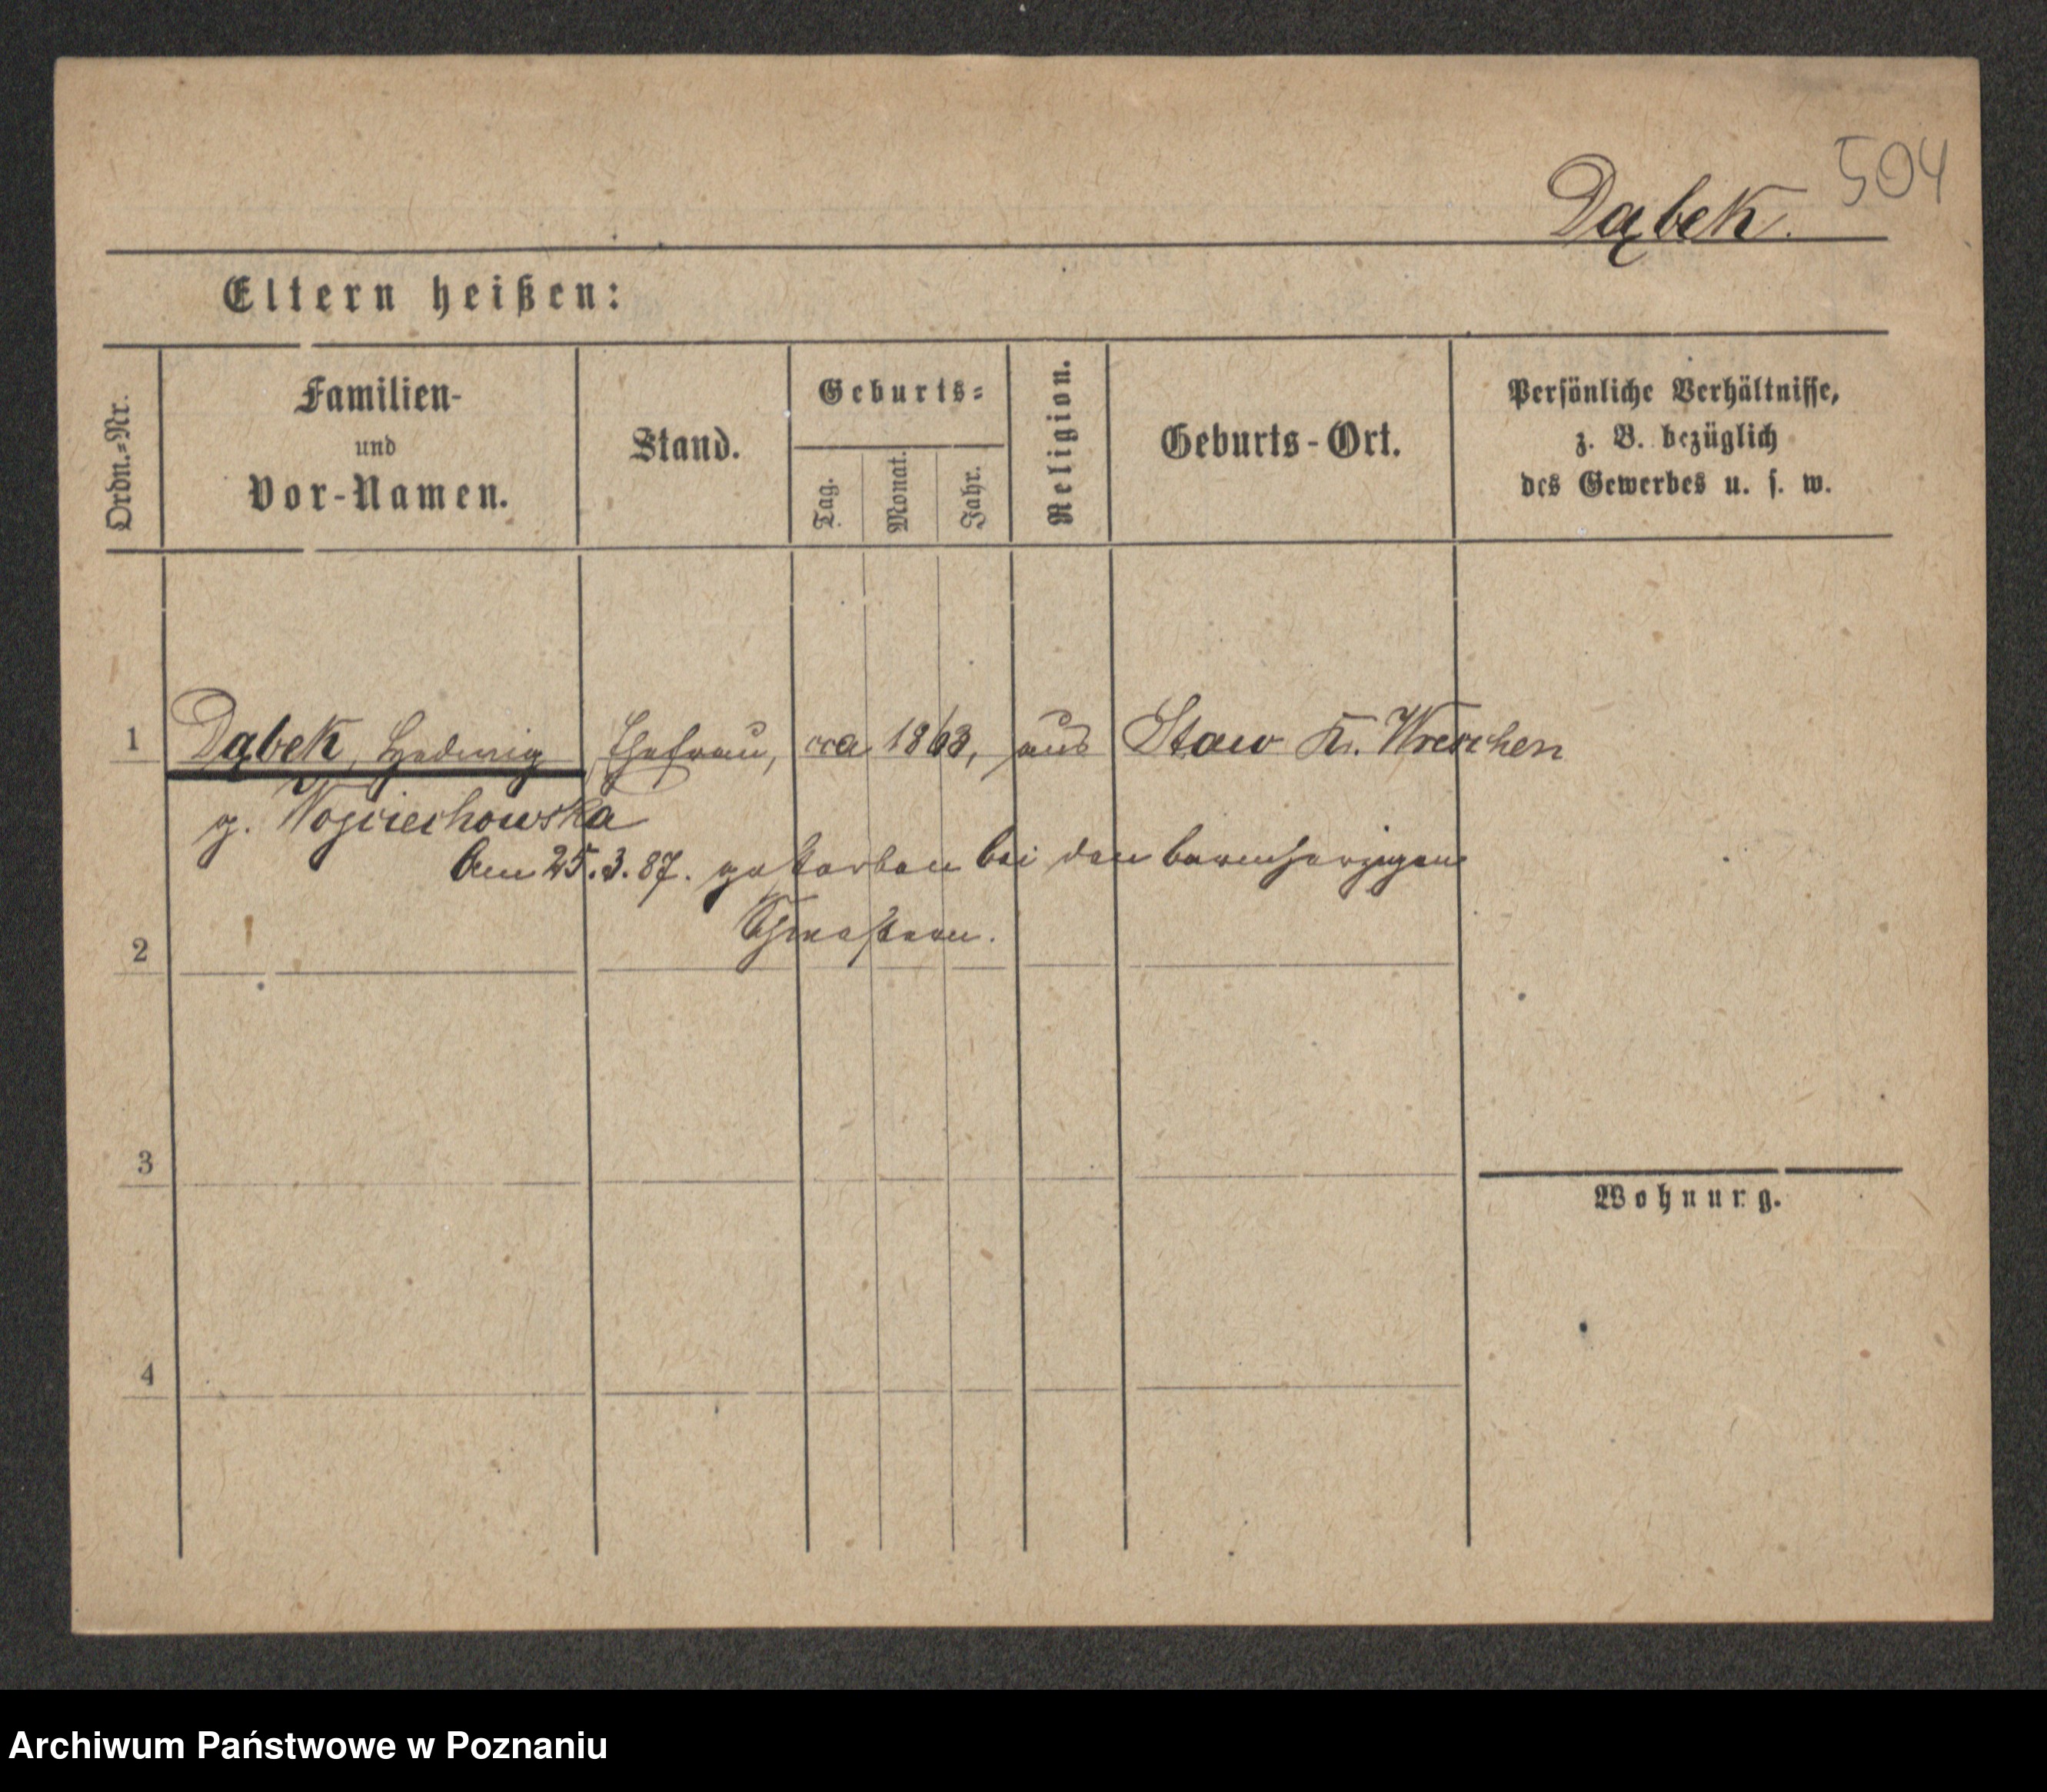 504
Dąbek.
Eltern heißen:
Ordn.=Nr.
Familien-
und
Vor-Namen.
Stand.
Geburts=
Tag.
Monat.
Jahr.
Religion.
Geburts-Ort.
Persönliche Verhältnisse,
z. B. bezüglich
des Gewerbes u. s. w.
1 Dąbek, Hedwig Ehefrau, cca 1863, aus Staw Kr. Wreschen
g. Wojciechowska
Am 25.3.87. gestorben bei den barmherzigen
Schwestern.
2
3
Wohnung.
4
Archiwum Państwowe w Poznaniu